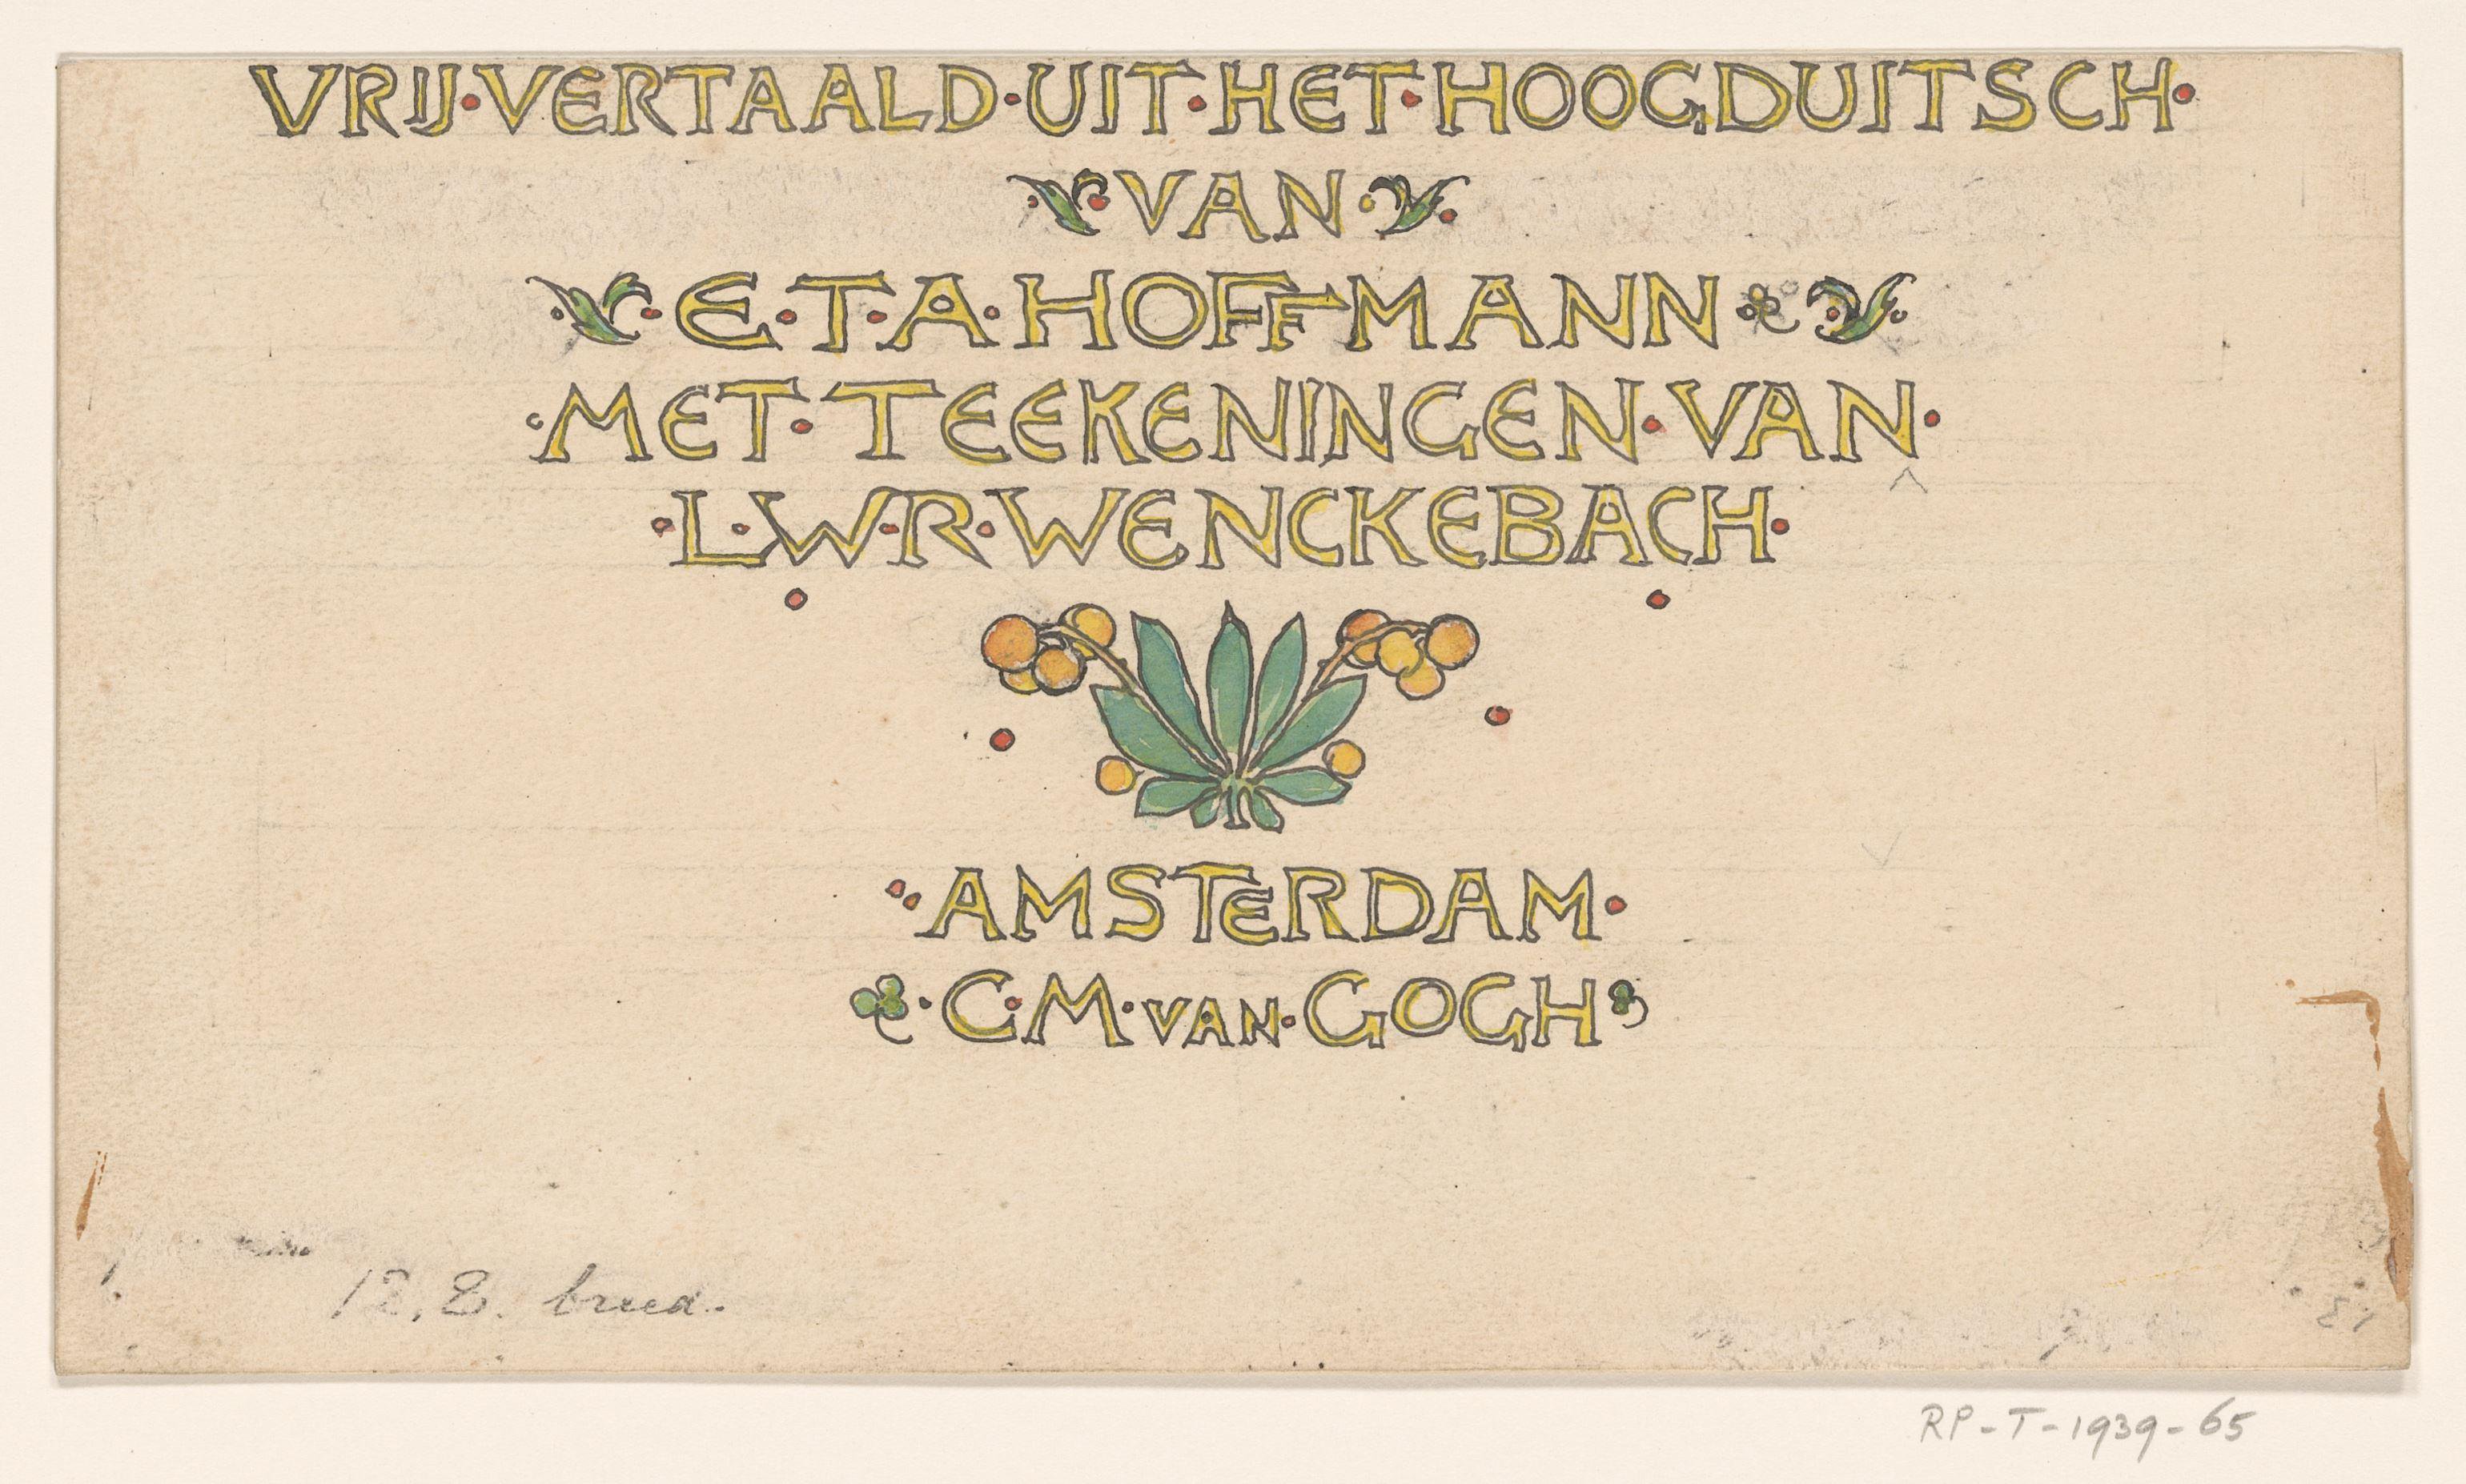 VRIJ·VERTAALD·UIT·HET·HOOGDUITSCH·
VAN
E·T·A·HOFFMANN
·MET·TEEKENINGEN·VAN·
·L·W·R·WENCKEBACH·
·AMSTERDAM·
·C·M·VAN·GOGH
12.8. breed.
RP-T-1939-65